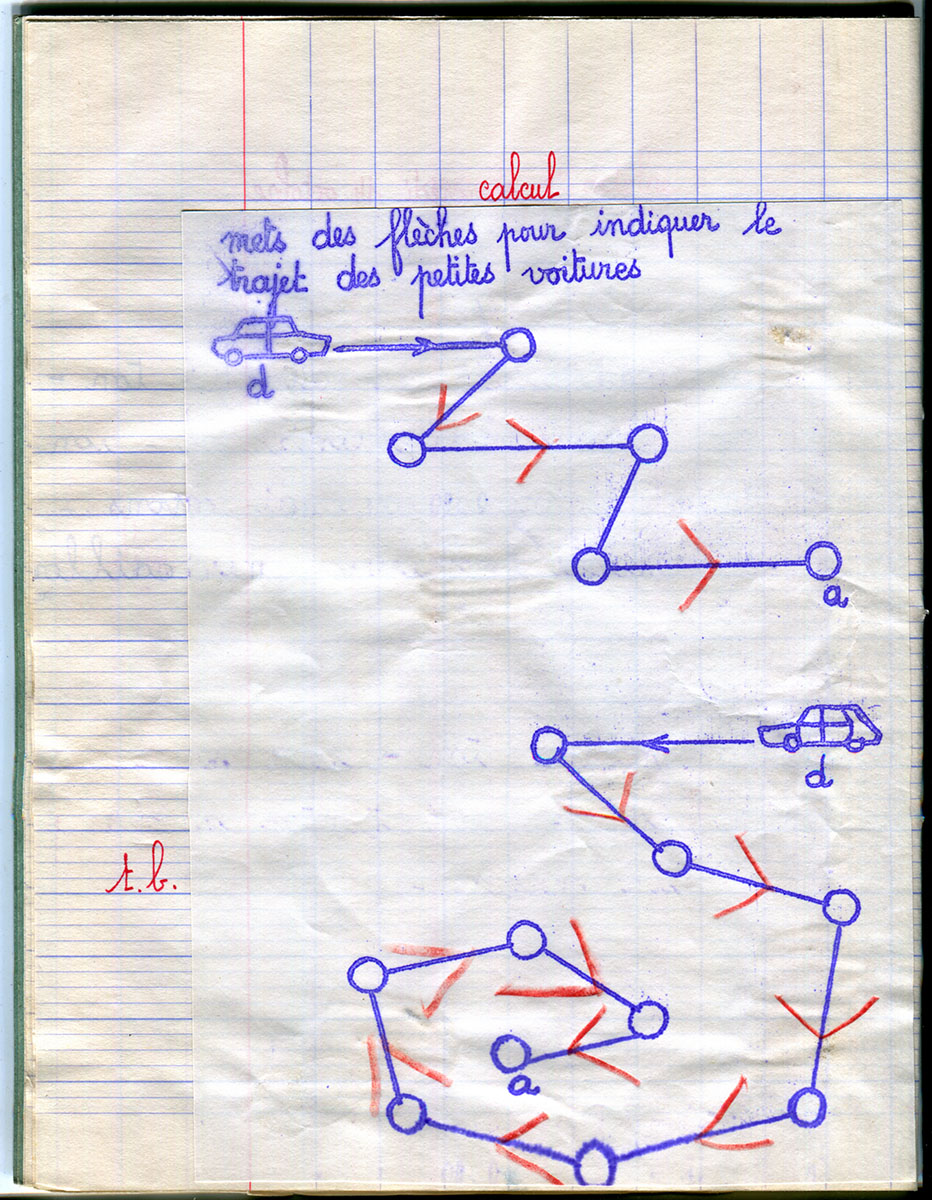 calcul
mets des flèches pour indiquer le
trajet des petites voitures
d
a
d
t.b.
a